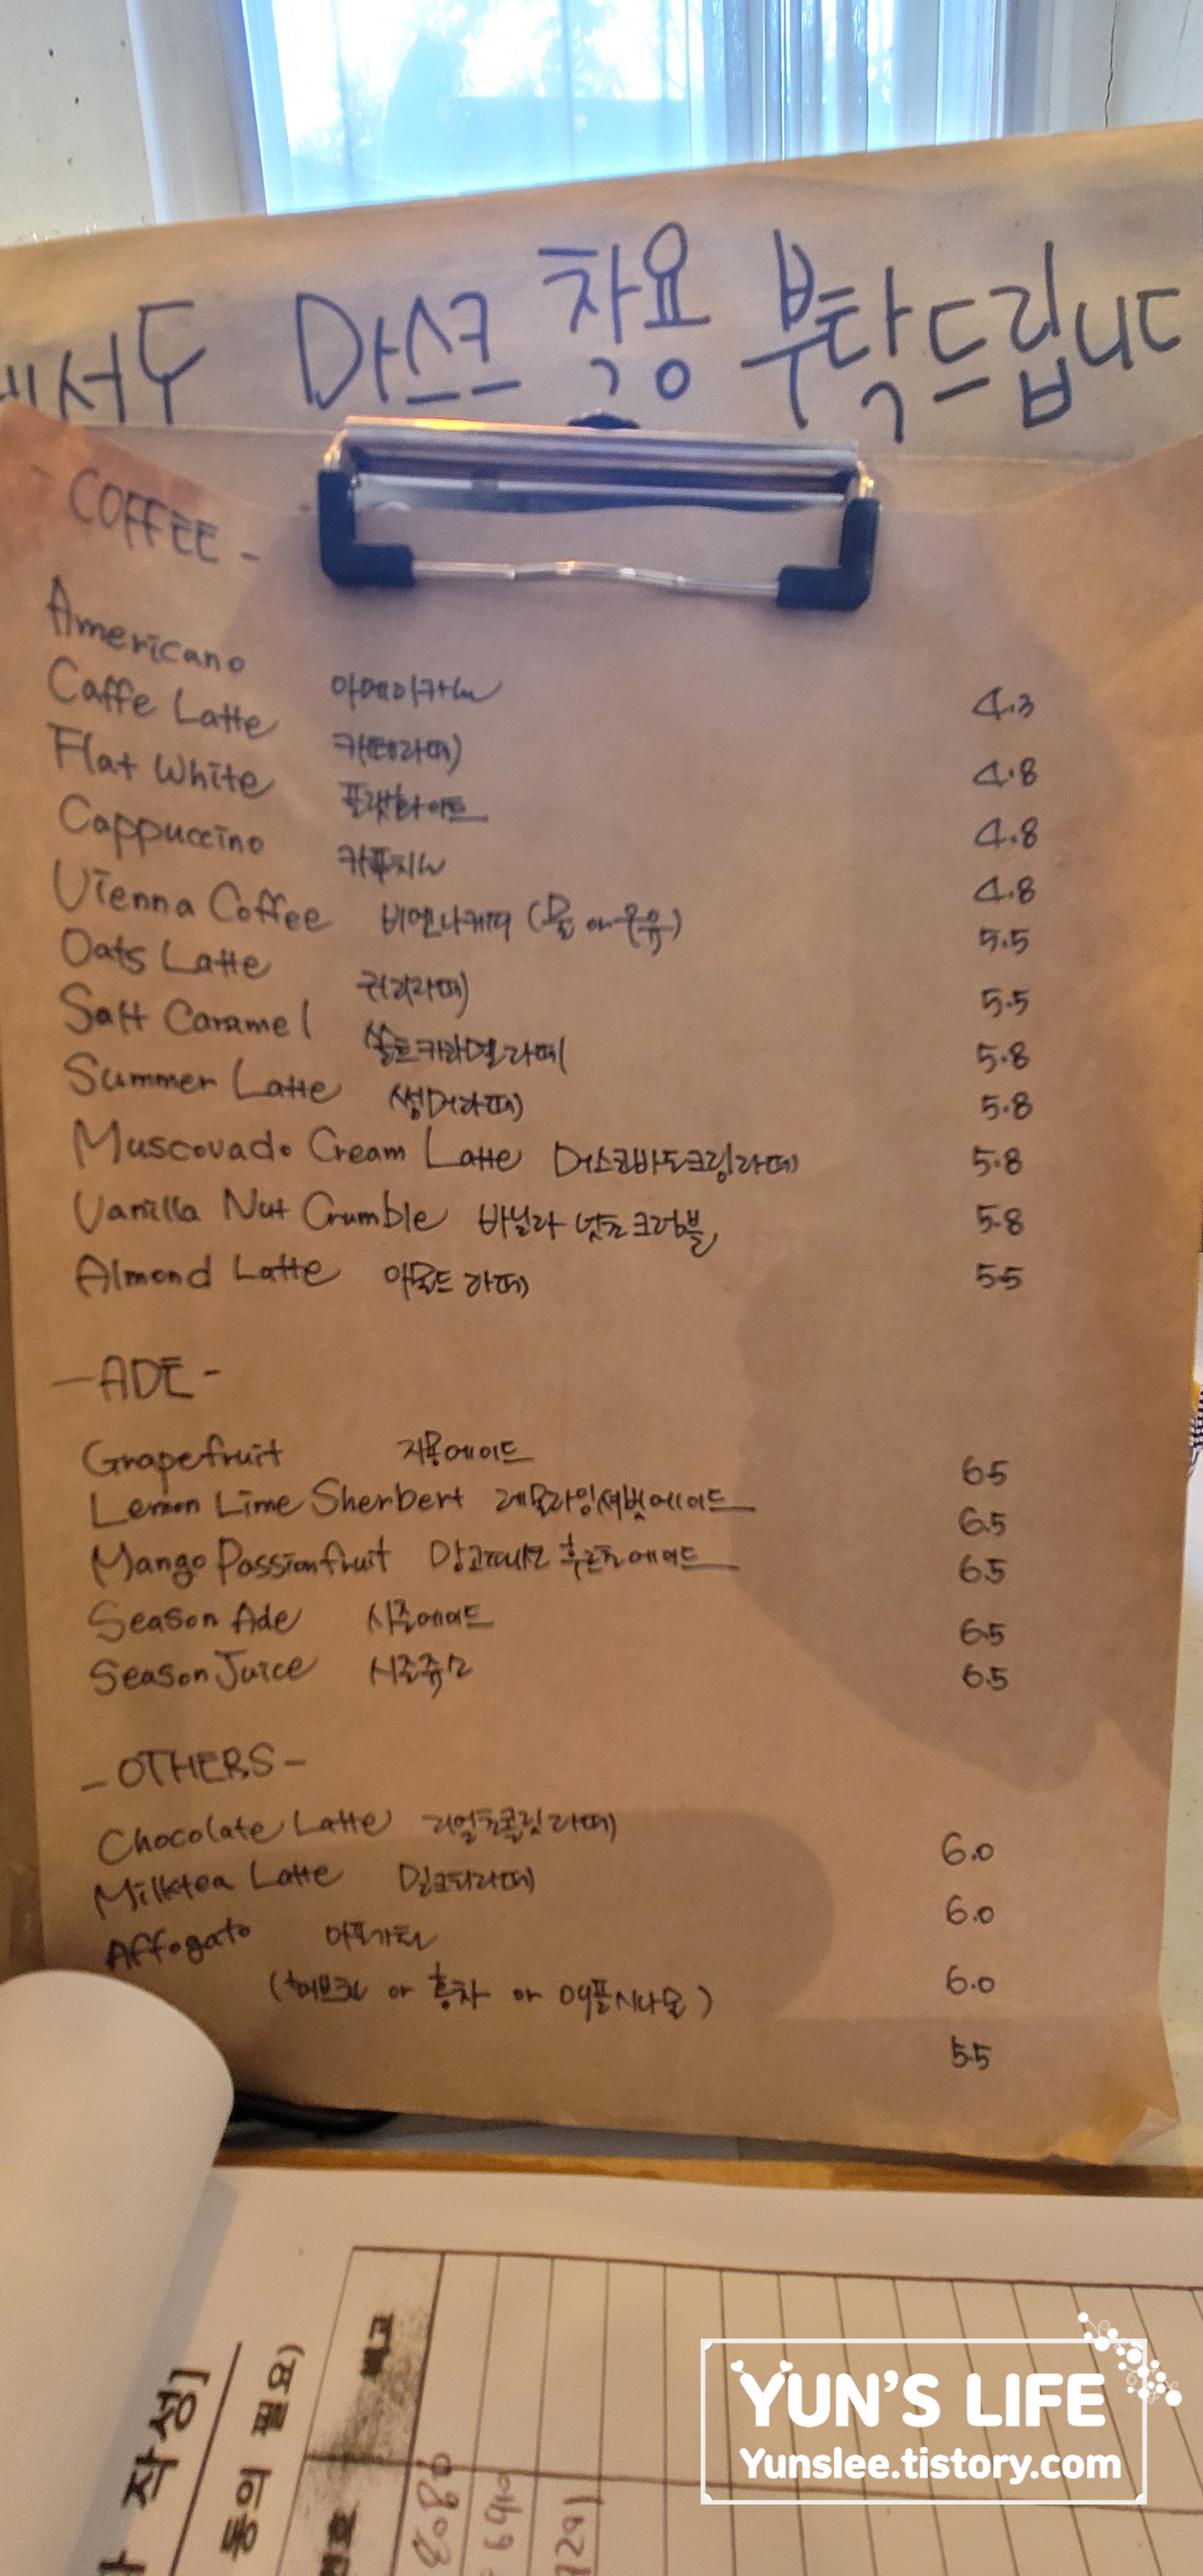 서도 마스크 착용 부탁드립니다
- COFFEE -
Americano 아메리카노 4.3
Caffe Latte 카페라떼 4.8
Flat White 플랫화이트 4.8
Cappuccino 카푸치노 4.8
Vienna Coffee 비엔나커피 (물 or 우유) 5.5
Oats Latte 귀리라떼 5.5
Salt Caramel 쏠트카라멜라떼 5.8
Summer Latte 썸머라떼 5.8
Muscovado Cream Latte 머스코바도크림라떼 5.8
Vanilla Nut Crumble 바닐라 넛츠크럼블 5.8
Almond Latte 아몬드 라떼 5.5
- ADE -
Grapefruit 자몽에이드 6.5
Lemon Lime Sherbert 레몬라임셔벗에이드 6.5
Mango Passionfruit 망고패션후르츠에이드 6.5
Season Ade 시즌에이드 6.5
Season Juice 시즌쥬스 6.5
- OTHERS -
Chocolate Latte 리얼초콜릿라떼 6.0
Milktea Latte 밀크티라떼 6.0
Affogato 아포가토 6.0
( or 홍차 or 애플시나몬) 5.5
작성]
동의 필요)
비고
번호
YUN'S LIFE
Yunslee.tistory.com